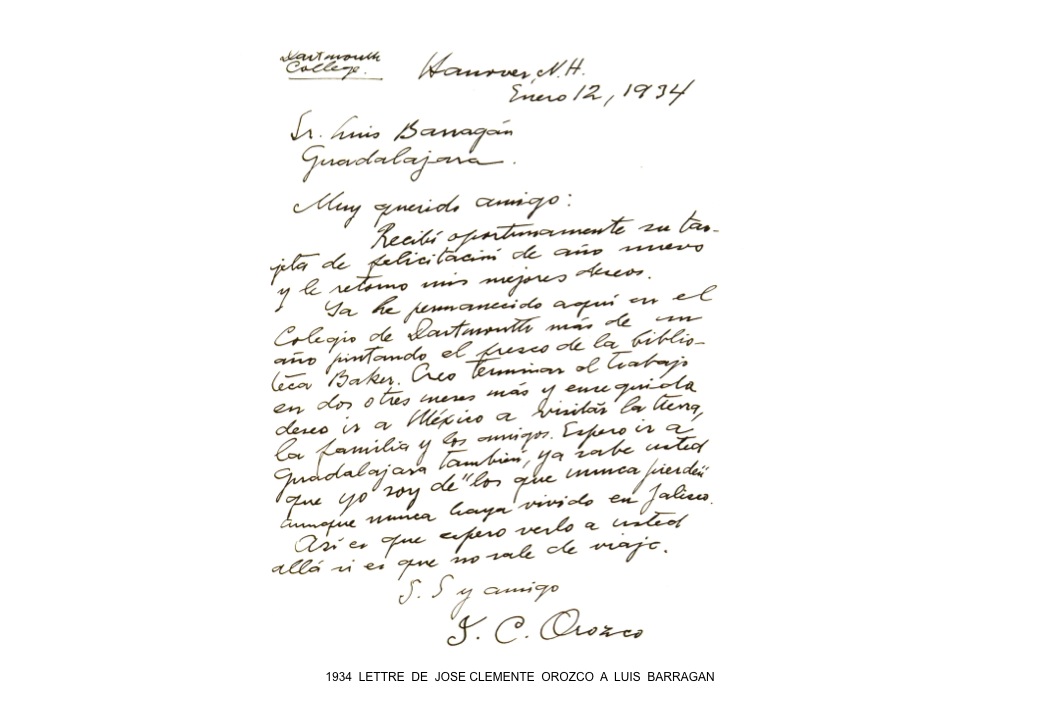 Dartmouth
College.
Hanover, N.H.
Enero 12, 1934
Sr. Luis Barragán
Guadalajara.
Muy querido amigo:
Recibí oportunamente su tar-
jeta de felicitación de año nuevo
y le retorno mis mejores deseos.
Ya he permanecido aquí en el
Colegio de Dartmouth más de un
año pintando el fresco de la biblio-
teca Baker. Creo terminar el trabajo
en dos o tres meses más y enseguida
deseo ir a México a visitar la tierra,
la familia y los amigos. Espero ir a
Guadalajara también, ya sabe usted
que yo soy de "los que nunca pierden"
aunque nunca haya vivido en Jalisco.
Así es que espero verlo a usted
allá si es que no sale de viaje.
S. S y amigo
J. C. Orozco
1934 LETTRE DE JOSE CLEMENTE OROZCO A LUIS BARRAGAN